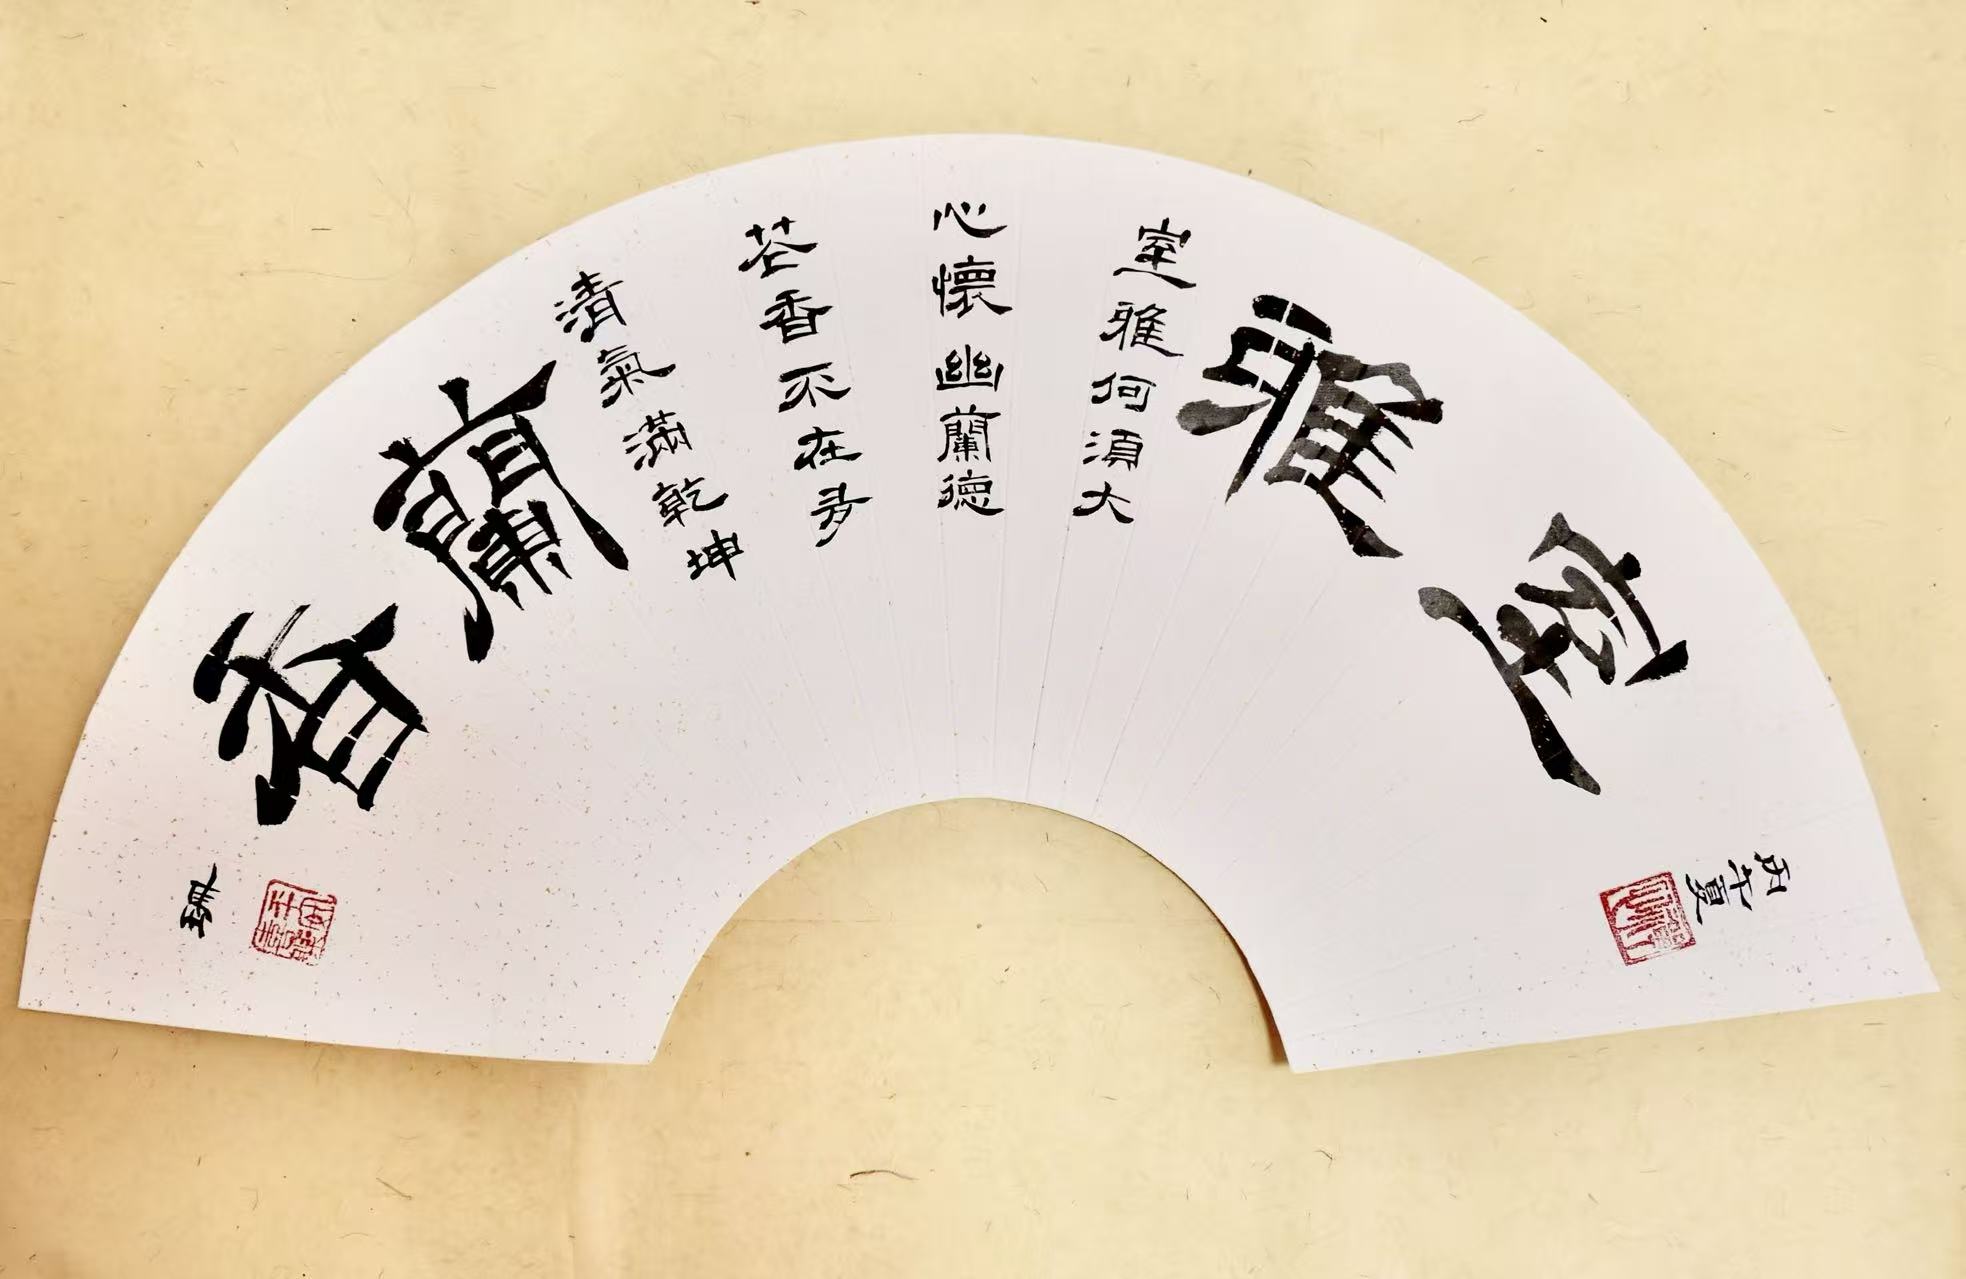 室雅
室雅何須大
心懷幽蘭德
花香不在多
清氣滿乾坤
蘭香
丙午夏